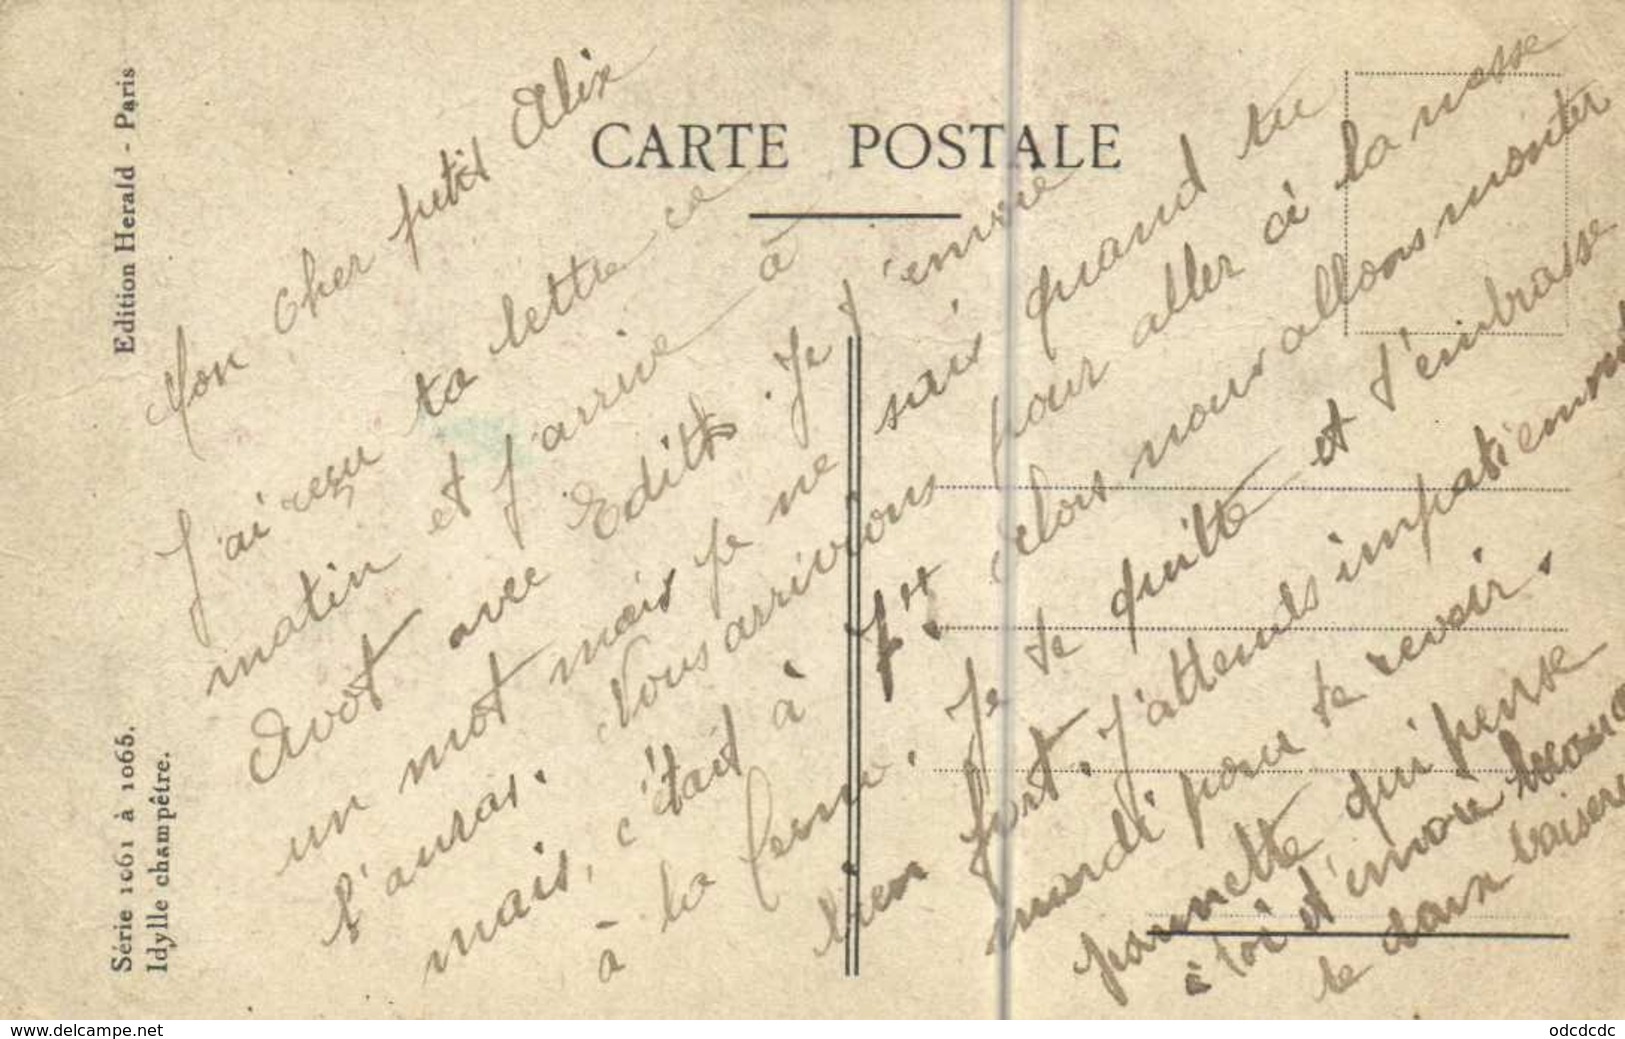 CARTE POSTALE
Edition Herald - Paris
Série 1061 à 1065.
Idylle champêtre.
Mon cher petit Alix
J'ai reçu ta lettre ce
matin et j'arrive à
avec Edith. Je t'envoie
un mot mais je ne sais quand tu
l'auras. Nous arrivions pour aller à la messe
mais, c'était à 7H. alors nous allons monter
à la Je te quitte et t'embrasse
bien fort. J'attends impatiemment
mardi pour te revoir.
qui pense
à toi et t'envoie beaucoup
de doux baisers
www.delcampe.net
odcdcdc